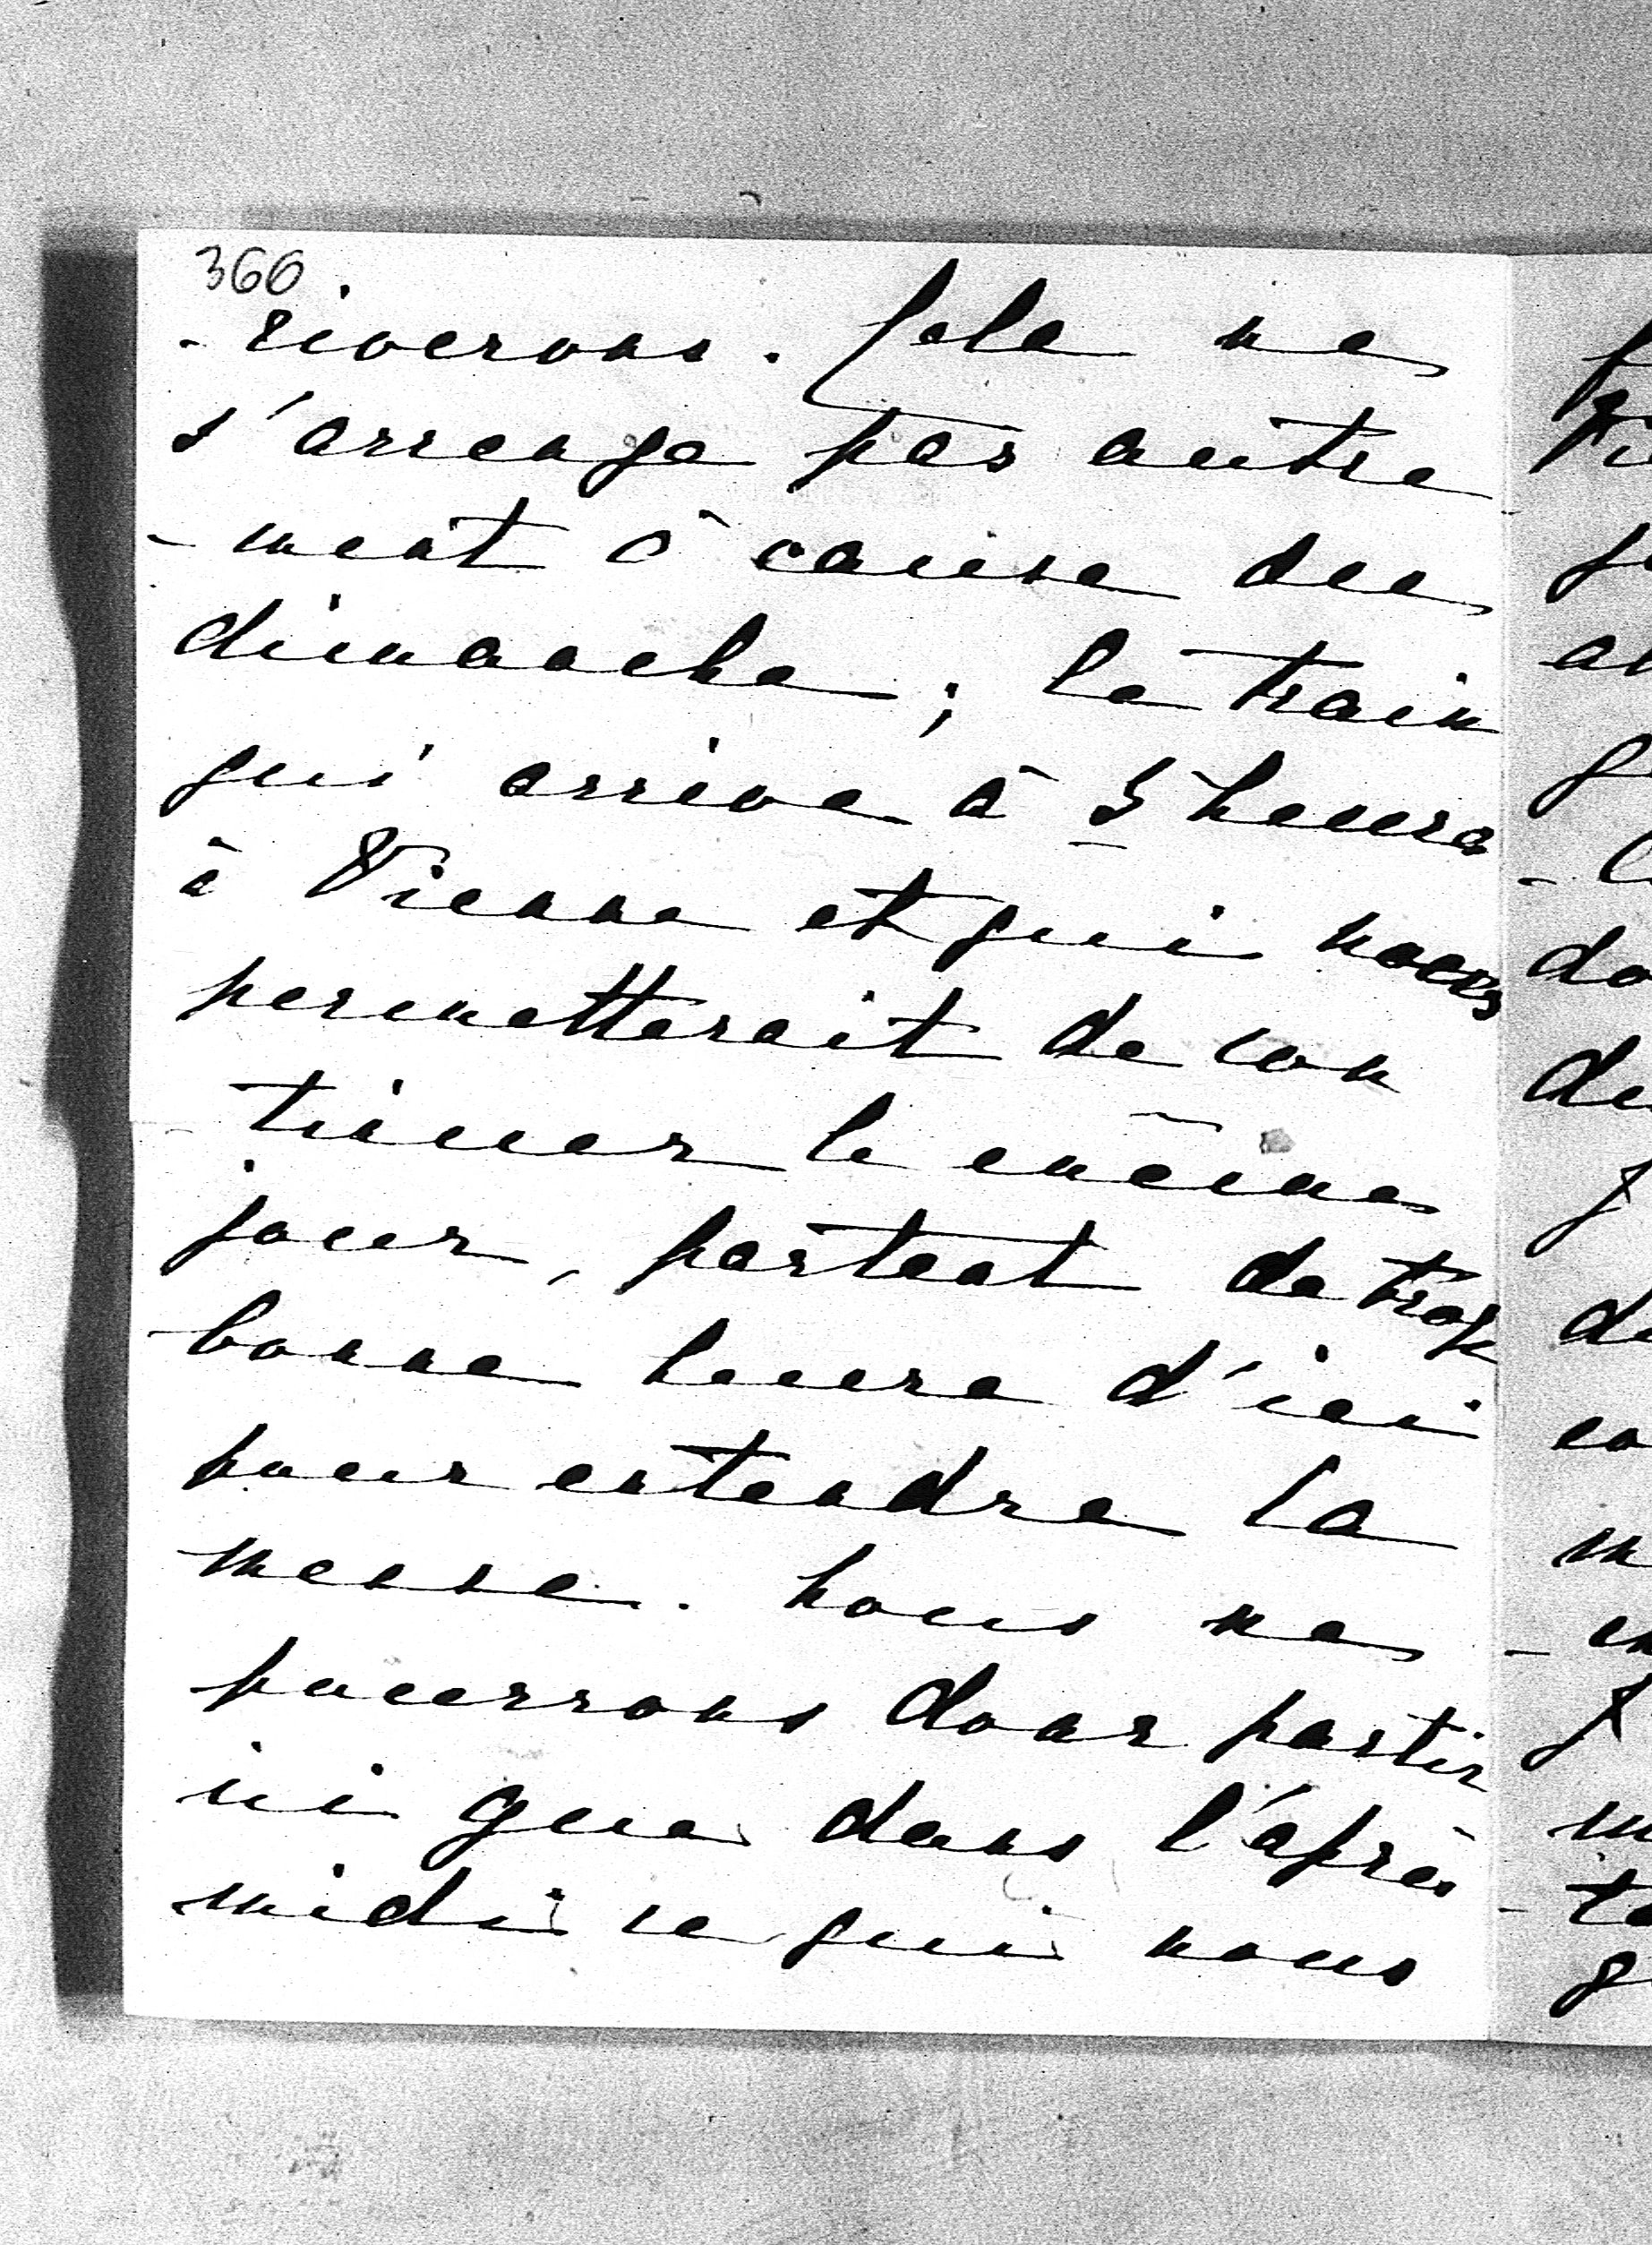 366
-riverons. Cela ne
s'arrenge pas autre
-ment à cause du
dimanche; le train
qui arrive à 5 heures
à Vienne et qui nous
permetterait de con
tinuer le même
jour, partant de trop
bonne heure d'ici
pour entendre la
messe. Nous ne
pourrons donc partir
ici que dans l'après
midi ce qui nous